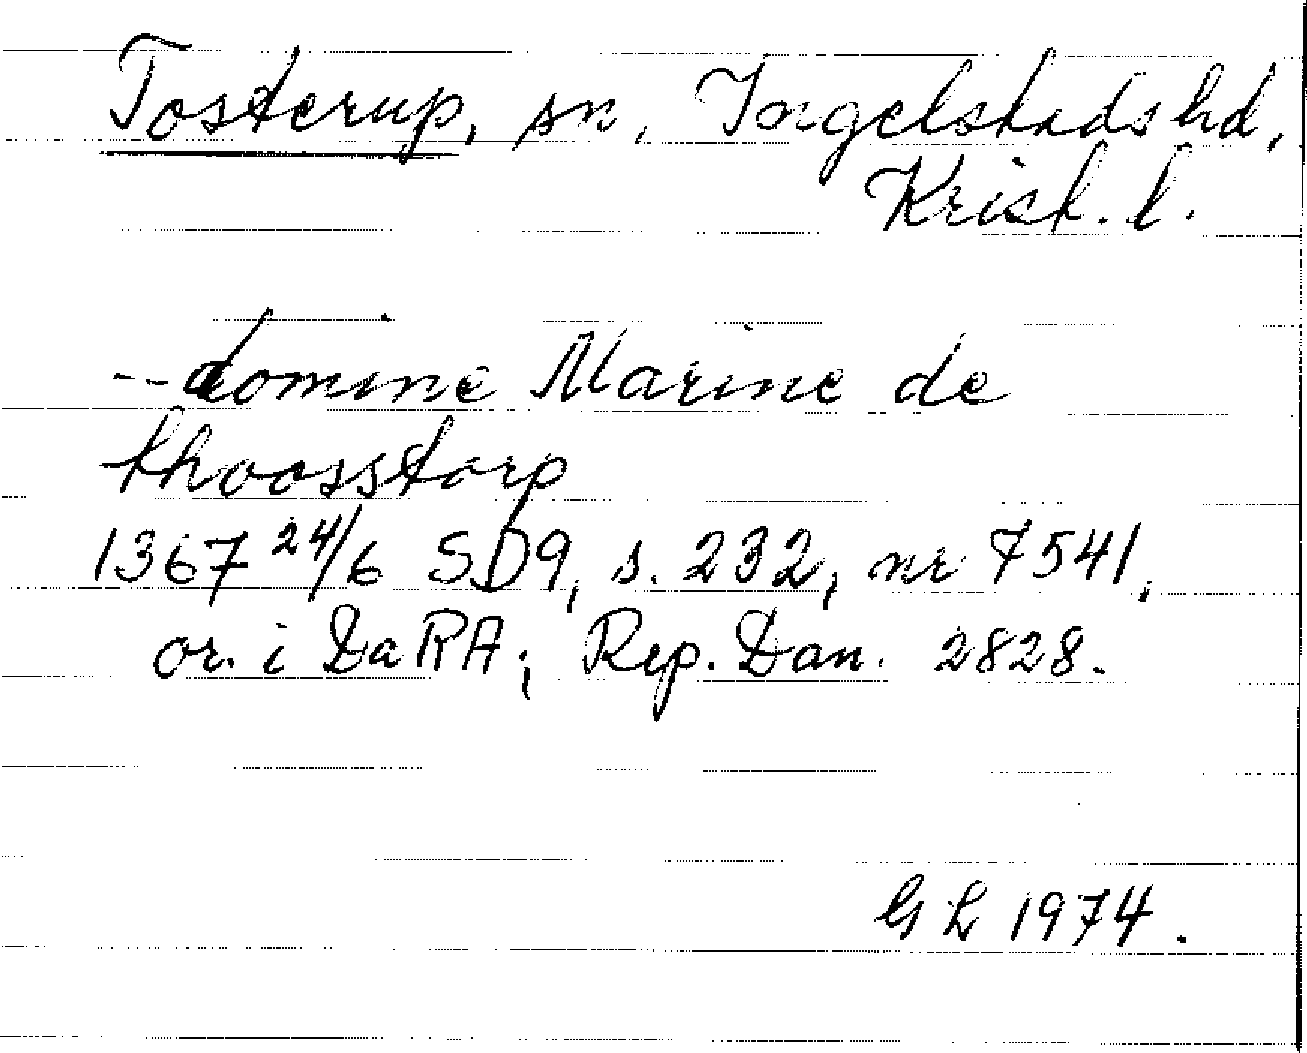 Tosterup, sn, Ingelstads hd,
Krist. l.
-- domine Marine de
thoosstorp
1367 24/6 SD9, s. 232, nr 7541,
or. i DaRA; Rep. Dan. 2828.
GL 1974.